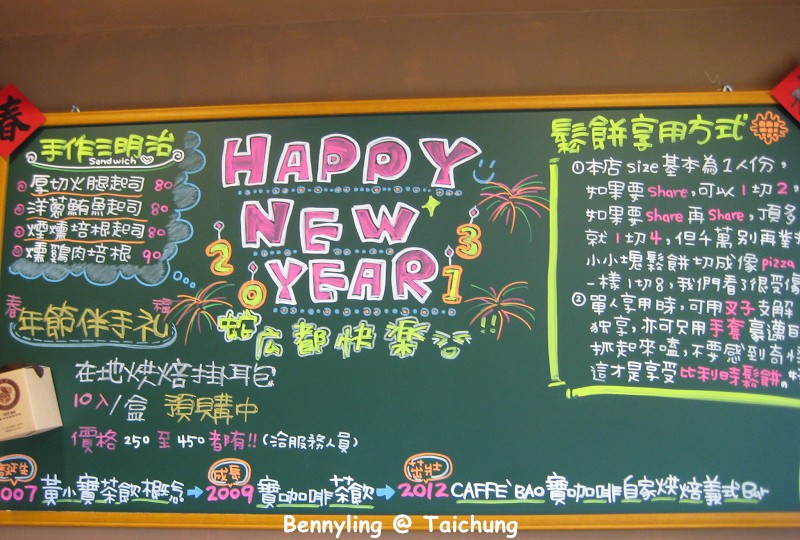 春
手作三明治
Sandwich
厚切火腿起司 80
洋蔥鮪魚起司 80
煙燻培根起司 80
燻雞肉培根 90
HAPPY
NEW
YEAR
2013
蛇広都快樂
春 福
年節伴手礼
在地烘焙掛耳包
10入/盒 預購中
價格 250 至 450 都有!! (洽服務人員)
鬆餅享用方式
①本店 size 基本為1人份,
如果要 share, 可以 1 切 2,
如果要 share 再 share, 頂多
就 1 切 4, 但千萬別再
小小塊鬆餅切成像 pizza
一樣 1 切 8, 我們看了很受
②單人享用時, 可用叉子支解
独享, 亦可只用手套豪邁
抓起來嗑, 不要感到奇怪
這才是享受比利時鬆餅。
誕生 成長 茁壯
2007 黃小寶茶飲概念 → 2009 寶咖啡茶飲 → 2012 CAFFE' BAO 寶咖啡自家烘焙義式Bar
Bennyling @ Taichung